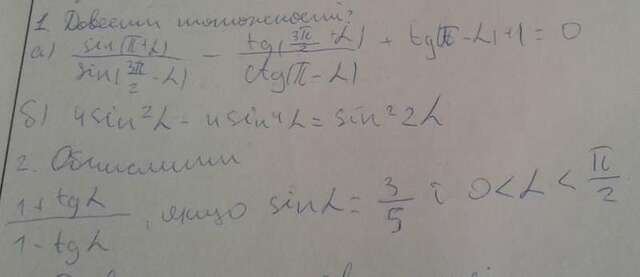 1. Довести тотожності:
а) sin(π+α)/sin(3π/2-α) - tg(3π/2+α)/ctg(π-α) + tg(π-α)+1=0
б) 4sin²α-4sin⁴α=sin²2α
2. Обчислити
1+tgα/1-tgα, якщо sinα=3/5 і 0<α<π/2